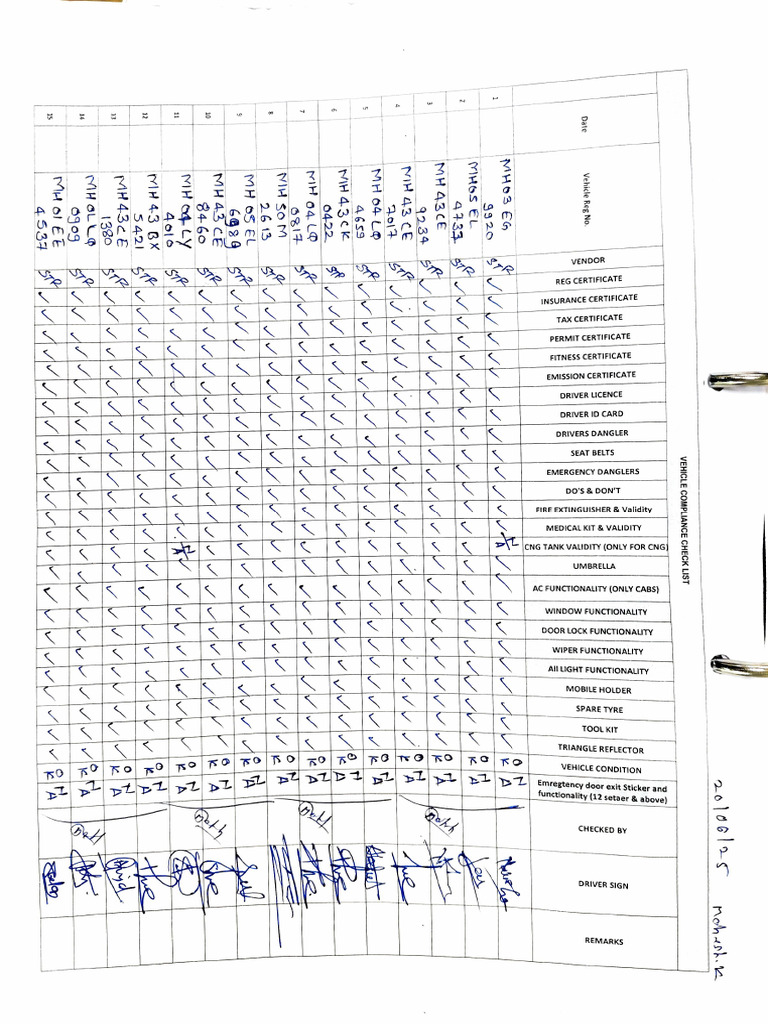 20/06/25 Mahesh.K
VEHICLE COMPLIANCE CHECK LIST
Date
Vehicle Reg No.
VENDOR
REG CERTIFICATE
INSURANCE CERTIFICATE
TAX CERTIFICATE
PERMIT CERTIFICATE
FITNESS CERTIFICATE
EMISSION CERTIFICATE
DRIVER LICENCE
DRIVER ID CARD
DRIVERS DANGLER
SEAT BELTS
EMERGENCY DANGLERS
DO'S & DON'T
FIRE EXTINGUISHER & Validity
MEDICAL KIT & VALIDITY
CNG TANK VALIDITY (ONLY FOR CNG)
UMBRELLA
AC FUNCTIONALITY (ONLY CABS)
WINDOW FUNCTIONALITY
DOOR LOCK FUNCTIONALITY
WIPER FUNCTIONALITY
All LIGHT FUNCTIONALITY
MOBILE HOLDER
SPARE TYRE
TOOL KIT
TRIANGLE REFLECTOR
VEHICLE CONDITION
Emregtency door exit Sticker and
functionality (12 setaer & above)
CHECKED BY
DRIVER SIGN
REMARKS
1 MH03 EG 9920 STR ✓ ✓ ✓ ✓ ✓ ✓ ✓ ✓ ✓ ✓ ✓ ✓ ✓ ✓ NA ✓ ✓ ✓ ✓ ✓ ✓ ✓ ✓ ✓ ✓ OK NA
2 MH05 EL 4733 STR ✓ ✓ ✓ ✓ ✓ ✓ ✓ ✓ ✓ ✓ ✓ ✓ ✓ ✓ ✓ ✓ ✓ ✓ ✓ ✓ ✓ ✓ ✓ ✓ ✓ OK NA
3 MH43CE 9234 STR ✓ ✓ ✓ ✓ ✓ ✓ ✓ ✓ ✓ ✓ ✓ ✓ ✓ ✓ ✓ ✓ ✓ ✓ ✓ ✓ ✓ ✓ ✓ ✓ ✓ OK NA
4 MH 43 CE 2017 STR ✓ ✓ ✓ ✓ ✓ ✓ ✓ ✓ ✓ ✓ ✓ ✓ ✓ ✓ ✓ ✓ ✓ ✓ ✓ ✓ ✓ ✓ ✓ ✓ ✓ OK NA
5 MH 04 LQ 4659 STR ✓ ✓ ✓ ✓ ✓ ✓ ✓ ✓ ✓ ✓ ✓ ✓ ✓ ✓ ✓ ✓ ✓ ✓ ✓ ✓ ✓ ✓ ✓ ✓ ✓ OK NA
6 MH 43CK 0422 STR ✓ ✓ ✓ ✓ ✓ ✓ ✓ ✓ ✓ ✓ ✓ ✓ ✓ ✓ ✓ ✓ ✓ ✓ ✓ ✓ ✓ ✓ ✓ ✓ ✓ OK NA
7 MH 04 LQ 0817 STR ✓ ✓ ✓ ✓ ✓ ✓ ✓ ✓ ✓ ✓ ✓ ✓ ✓ ✓ ✓ ✓ ✓ ✓ ✓ ✓ ✓ ✓ ✓ ✓ ✓ OK NA
8 MH 50 M 2613 STR ✓ ✓ ✓ ✓ ✓ ✓ ✓ ✓ ✓ ✓ ✓ ✓ ✓ ✓ ✓ ✓ ✓ ✓ ✓ ✓ ✓ ✓ ✓ ✓ ✓ OK NA
9 MH 05 EL STR ✓ ✓ ✓ ✓ ✓ ✓ ✓ ✓ ✓ ✓ ✓ ✓ ✓ ✓ ✓ ✓ ✓ ✓ ✓ ✓ ✓ ✓ ✓ ✓ ✓ OK NA
10 MH 43 CE 8460 STR ✓ ✓ ✓ ✓ ✓ ✓ ✓ ✓ ✓ ✓ ✓ ✓ ✓ ✓ ✓ ✓ ✓ ✓ ✓ ✓ ✓ ✓ ✓ ✓ ✓ OK NA
11 MH 04 LY 4016 STR ✓ ✓ ✓ ✓ ✓ ✓ ✓ ✓ ✓ ✓ ✓ ✓ ✓ ✓ NA ✓ ✓ ✓ ✓ ✓ ✓ ✓ ✓ ✓ ✓ OK NA
12 MH 43 BX 5421 STR ✓ ✓ ✓ ✓ ✓ ✓ ✓ ✓ ✓ ✓ ✓ ✓ ✓ ✓ ✓ ✓ ✓ ✓ ✓ ✓ ✓ ✓ ✓ ✓ ✓ OK NA
13 MH 43 CE 1380 STR ✓ ✓ ✓ ✓ ✓ ✓ ✓ ✓ ✓ ✓ ✓ ✓ ✓ ✓ ✓ ✓ ✓ ✓ ✓ ✓ ✓ ✓ ✓ ✓ ✓ OK NA
14 MH 0909 STR ✓ ✓ ✓ ✓ ✓ ✓ ✓ ✓ ✓ ✓ ✓ ✓ ✓ ✓ ✓ ✓ ✓ ✓ ✓ ✓ ✓ ✓ ✓ ✓ ✓ OK NA
15 MH 01 EE 4537 STR ✓ ✓ ✓ ✓ ✓ ✓ ✓ ✓ ✓ ✓ ✓ ✓ ✓ ✓ ✓ ✓ ✓ ✓ ✓ ✓ ✓ ✓ ✓ ✓ ✓ OK NA